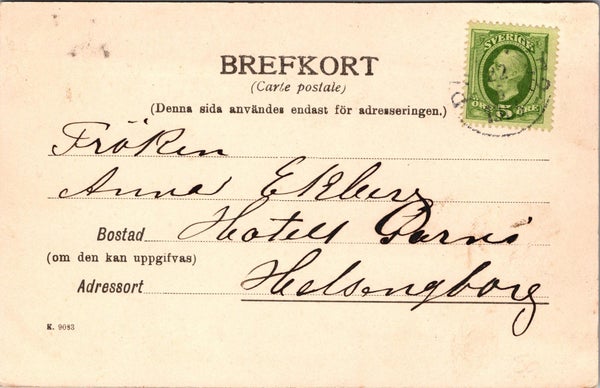 BREFKORT
(Carte postale)
(Denna sida användes endast för adresseringen.)
SVERIGE
ÖRE 5 ÖRE
Fröken
Anna Ekberg
Bostad Hotell
(om den kan uppgifvas)
Adressort Helsengborg
K. 9083